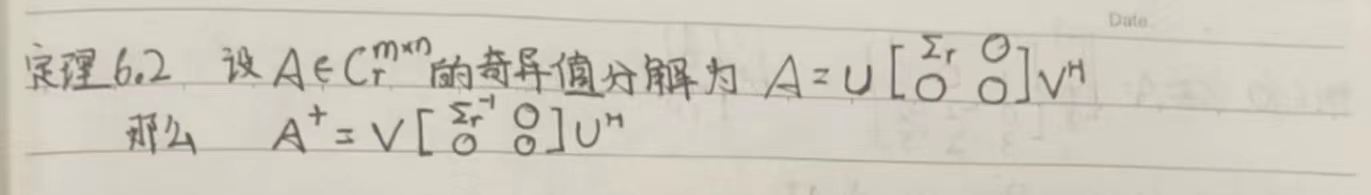 Date.
定理6.2 设 A∈C_r^{m×n} 的奇异值分解为 A=U[Σ_r 0; 0 0]V^H
那么 A^+=V[Σ_r^{-1} 0; 0 0]U^H